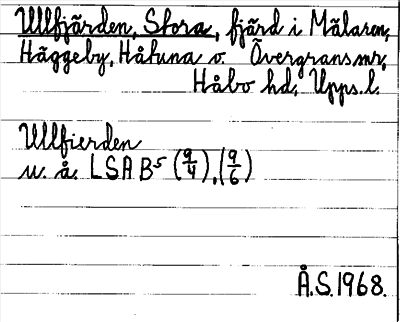 Ullfjärden, Stora, fjärd i Mälaren,
Häggeby, Håtuna o. Övergransmr,
Håbo hd, Upps.l.
Ullfierden
u. å. LSA B⁵ (9/4), (9/6)
Å.S.1968.